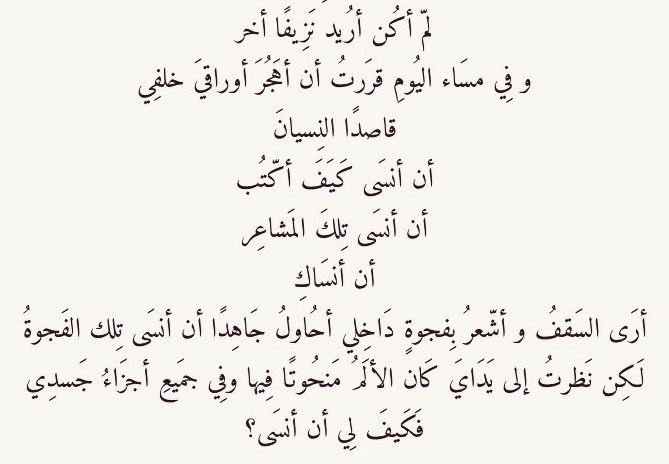 لمّ أكُن أرُيد نَزِيفًا أخر
و فِي مسَاء اليُومِ قرَرتُ أن أهَجُرَ أوراقيَ خلفِي
قاصدًا النِسيانَ
أن أنسَى كَيَفَ أكّتُب
أن أنسَى تِلكَ المَشاعِر
أن أنسَاكِ
أرَى السَقفُ و أشّعرُ بِفجوةٍ دَاخِلي أحُاولُ جَاهِدًا أن أنسَى تِلك الفَجوةُ
لَكِن نَظرتُ إلى يَدَايَ كَان الألَمُ مَنحُوتًا فِيها وفِي جمَيعِ أجزَاءُ جَسدِي
فَكَيفَ لِي أن أنسَى؟